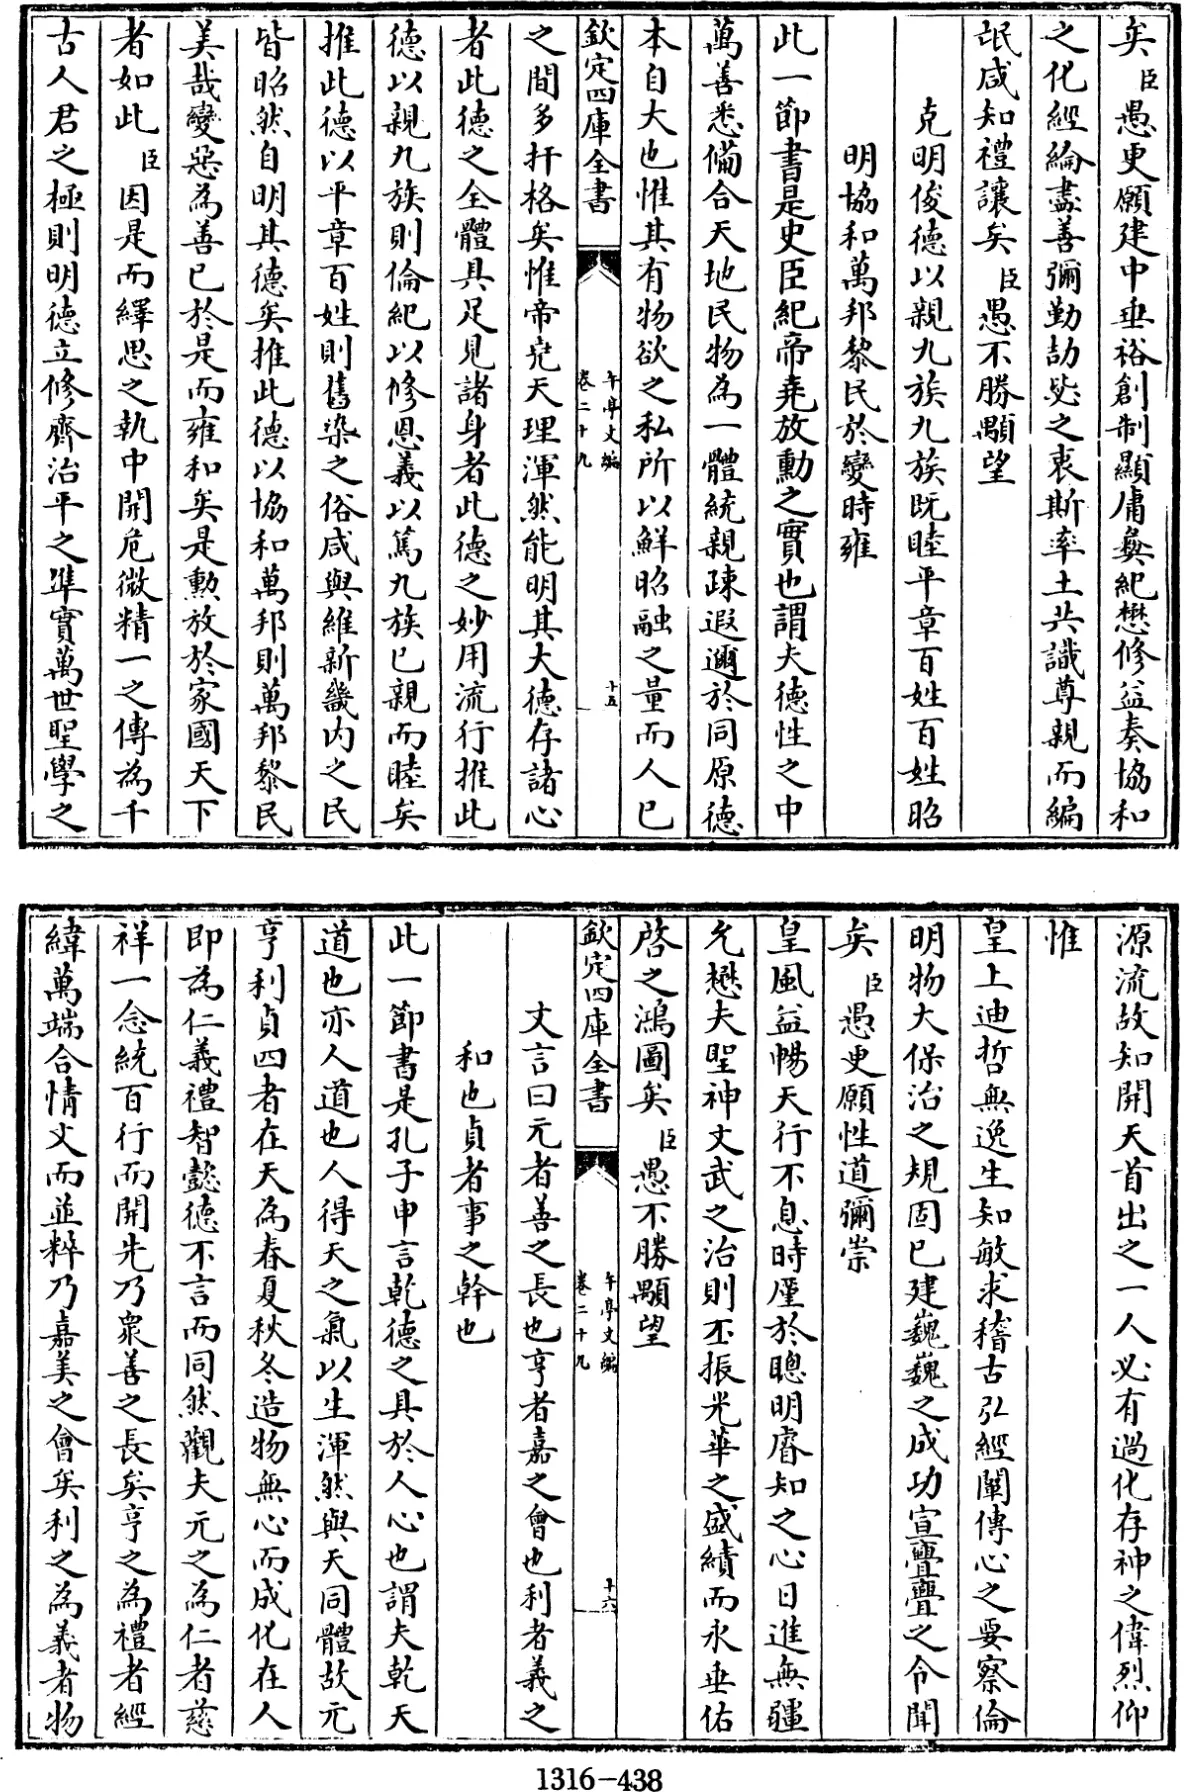 矣臣愚更願建中垂裕創制顯庸彝紀懋修益奏協和
之化經綸盡善彌勤劼毖之衷斯率土共識尊親而編
氓咸知禮讓矣臣愚不勝顒望
克明俊德以親九族九族既睦平章百姓百姓昭
明協和萬邦黎民於變時雍
此一節書是史臣紀帝堯放勳之實也謂夫德性之中
萬善悉備合天地民物為一體統親疎遐邇於同原德
本自大也惟其有物欲之私所以鮮昭融之量而人已
欽定四庫全書
午亭文編
卷二十九
十五
之間多扞格矣惟帝堯天理渾然能明其大德存諸心
者此德之全體具足見諸身者此德之妙用流行推此
德以親九族則倫紀以修恩義以篤九族已親而睦矣
推此德以平章百姓則舊染之俗咸與維新畿内之民
皆昭然自明其德矣推此德以協和萬邦則萬邦黎民
美哉變惡為善已於是而雍和矣是勲放於家國天下
者如此臣因是而繹思之執中開危微精一之傳為千
古人君之極則明德立修齊治平之凖實萬世聖學之
源流故知開天首出之一人必有過化存神之偉烈仰
惟
皇上迪哲無逸生知敏求稽古弘經闡傳心之要察倫
明物大保治之規固已建巍巍之成功宣亹亹之令聞
矣臣愚更願性道彌崇
皇風益暢天行不息時廑於聰明睿知之心日進無疆
允懋夫聖神文武之治則丕振光華之盛績而永垂佑
啓之鴻圖矣臣愚不勝顒望
欽定四庫全書
午亭文編
卷二十九
十六
文言曰元者善之長也亨者嘉之會也利者義之
和也貞者事之幹也
此一節書是孔子申言乾德之具於人心也謂夫乾天
道也亦人道也人得天之氣以生渾然與天同體故元
亨利貞四者在天為春夏秋冬造物無心而成化在人
即為仁義禮智懿德不言而同然觀夫元之為仁者慈
祥一念統百行而開先乃衆善之長矣亨之為禮者經
緯萬端合情文而並粹乃嘉美之會矣利之為義者物
1316-438